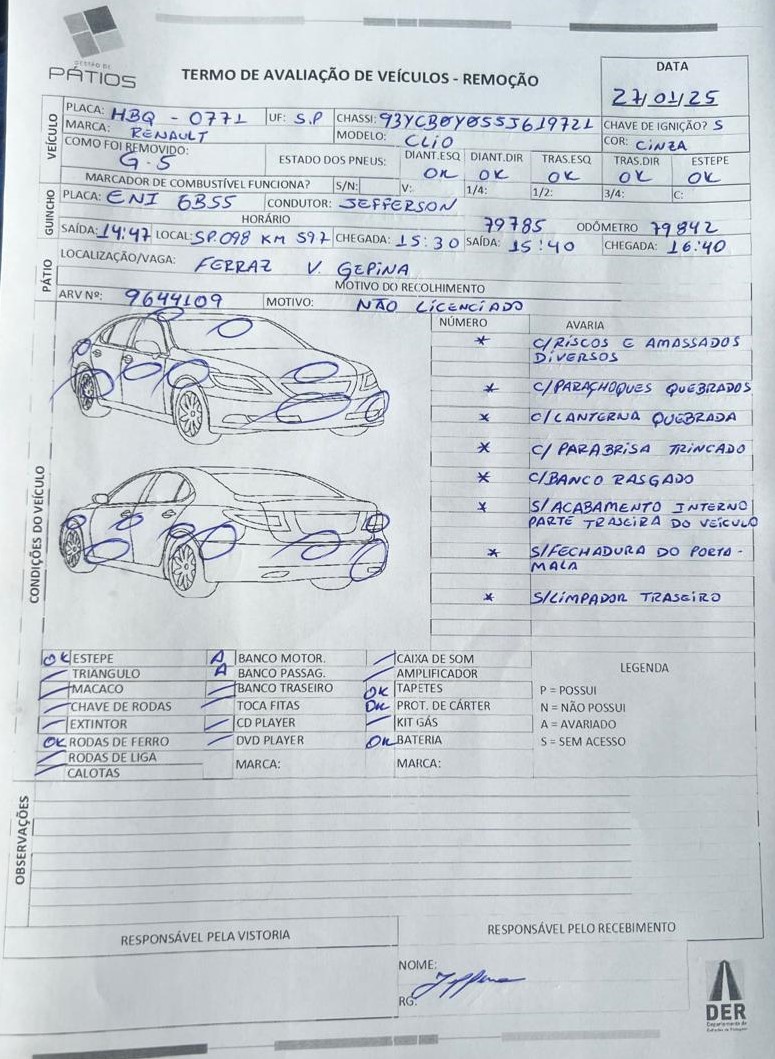 GESTÃO DE
PÁTIOS
TERMO DE AVALIAÇÃO DE VEÍCULOS - REMOÇÃO
DATA
27/01/25
VEÍCULO
PLACA: HBQ - 0771 UF: S.P CHASSI: 93YCB0Y055J619721 CHAVE DE IGNIÇÃO? S
MARCA: RENAULT MODELO: CLIO COR: CINZA
COMO FOI REMOVIDO: G.5 ESTADO DOS PNEUS: DIANT.ESQ OK DIANT.DIR OK TRAS.ESQ OK TRAS.DIR OK ESTEPE OK
MARCADOR DE COMBUSTÍVEL FUNCIONA? S/N: V: 1/4: 1/2: 3/4: C:
GUINCHO
PLACA: ENI 6B55 CONDUTOR: JEFFERSON
HORÁRIO 79785 ODÔMETRO 79842
SAÍDA: 14:47 LOCAL: SP.098 KM 597 CHEGADA: 15:30 SAÍDA: 15:40 CHEGADA: 16:40
PÁTIO
LOCALIZAÇÃO/VAGA: FERRAZ V. GEPINA
MOTIVO DO RECOLHIMENTO
ARV Nº: 9644109 MOTIVO: NÃO LICENCIADO
CONDIÇÕES DO VEÍCULO
NÚMERO AVARIA
* C/RISCOS E AMASSADOS
DIVERSOS
* C/PARAÇHOQUES QUEBRADOS
* C/LANTERNA QUEBRADA
* C/PARABRISA TRINCADO
* C/BANCO RASGADO
* S/ACABAMENTO INTERNO
PARTE TRASEIRA DO VEÍCULO
* S/FECHADURA DO PORTA-
MALA
* S/LIMPADOR TRASEIRO
OK ESTEPE A BANCO MOTOR. CAIXA DE SOM LEGENDA
TRIANGULO A BANCO PASSAG. AMPLIFICADOR
MACACO BANCO TRASEIRO OK TAPETES P = POSSUI
CHAVE DE RODAS TOCA FITAS OK PROT. DE CÁRTER N = NÃO POSSUI
EXTINTOR CD PLAYER KIT GÁS A = AVARIADO
OK RODAS DE FERRO DVD PLAYER OK BATERIA S = SEM ACESSO
RODAS DE LIGA MARCA: MARCA:
CALOTAS
OBSERVAÇÕES
RESPONSÁVEL PELA VISTORIA RESPONSÁVEL PELO RECEBIMENTO
NOME:
RG:
DER
Departamento de
Estradas de Rodagem